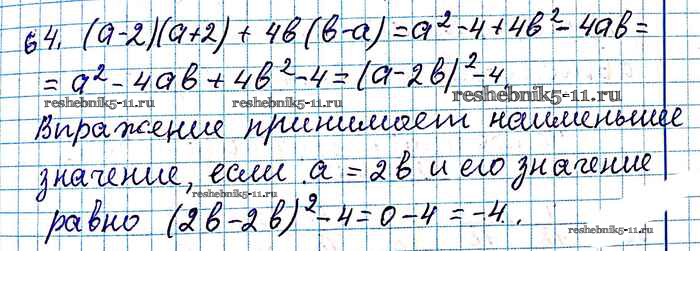 64. (a-2)(a+2) + 4b(b-a) = a² - 4 + 4b² - 4ab =
= a² - 4ab + 4b² - 4 = (a-2b)² - 4
reshebnik5-11.ru reshebnik5-11.ru reshebnik5-11.ru
Выражение принимает наименьшее
значение, если a = 2b и его значение
reshebnik5-11.ru
равно (2b-2b)² - 4 = 0 - 4 = -4.
reshebnik5-11.ru